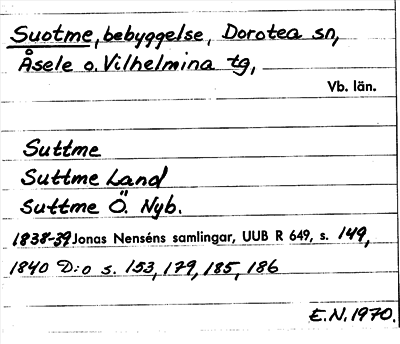 Suotme, bebyggelse, Dorotea sn,
Åsele o. Vilhelmina tg,
Vb. län.
Suttme
Suttme Land
Suttme Ö. Nyb.
1838-39 Jonas Nenséns samlingar, UUB R 649, s. 149,
1840 D:o s. 153, 179, 185, 186
E.N. 1970.